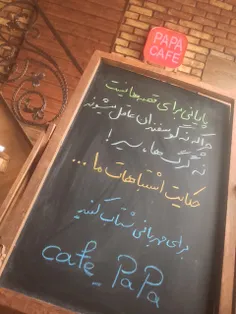 PAPA
CAFE
پایانی برای قصه‌ها نیست
چرا که نه گوسفندان عاقل میشوند
نه گرگ‌ها، سیر!
حکایت اشتباهات ما...
برای مهربانی شتاب کنید
cafe PaPa